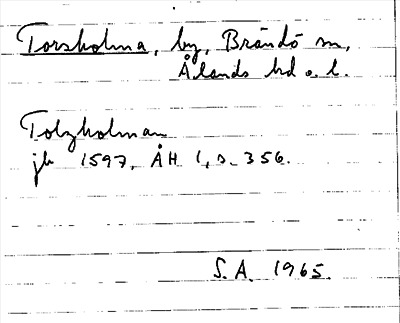 Torsholma, by, Brändö sn,
Ålands hd o. l.
Tolzholman
jb 1597, ÅH 1, s. 356.
S.A. 1965.